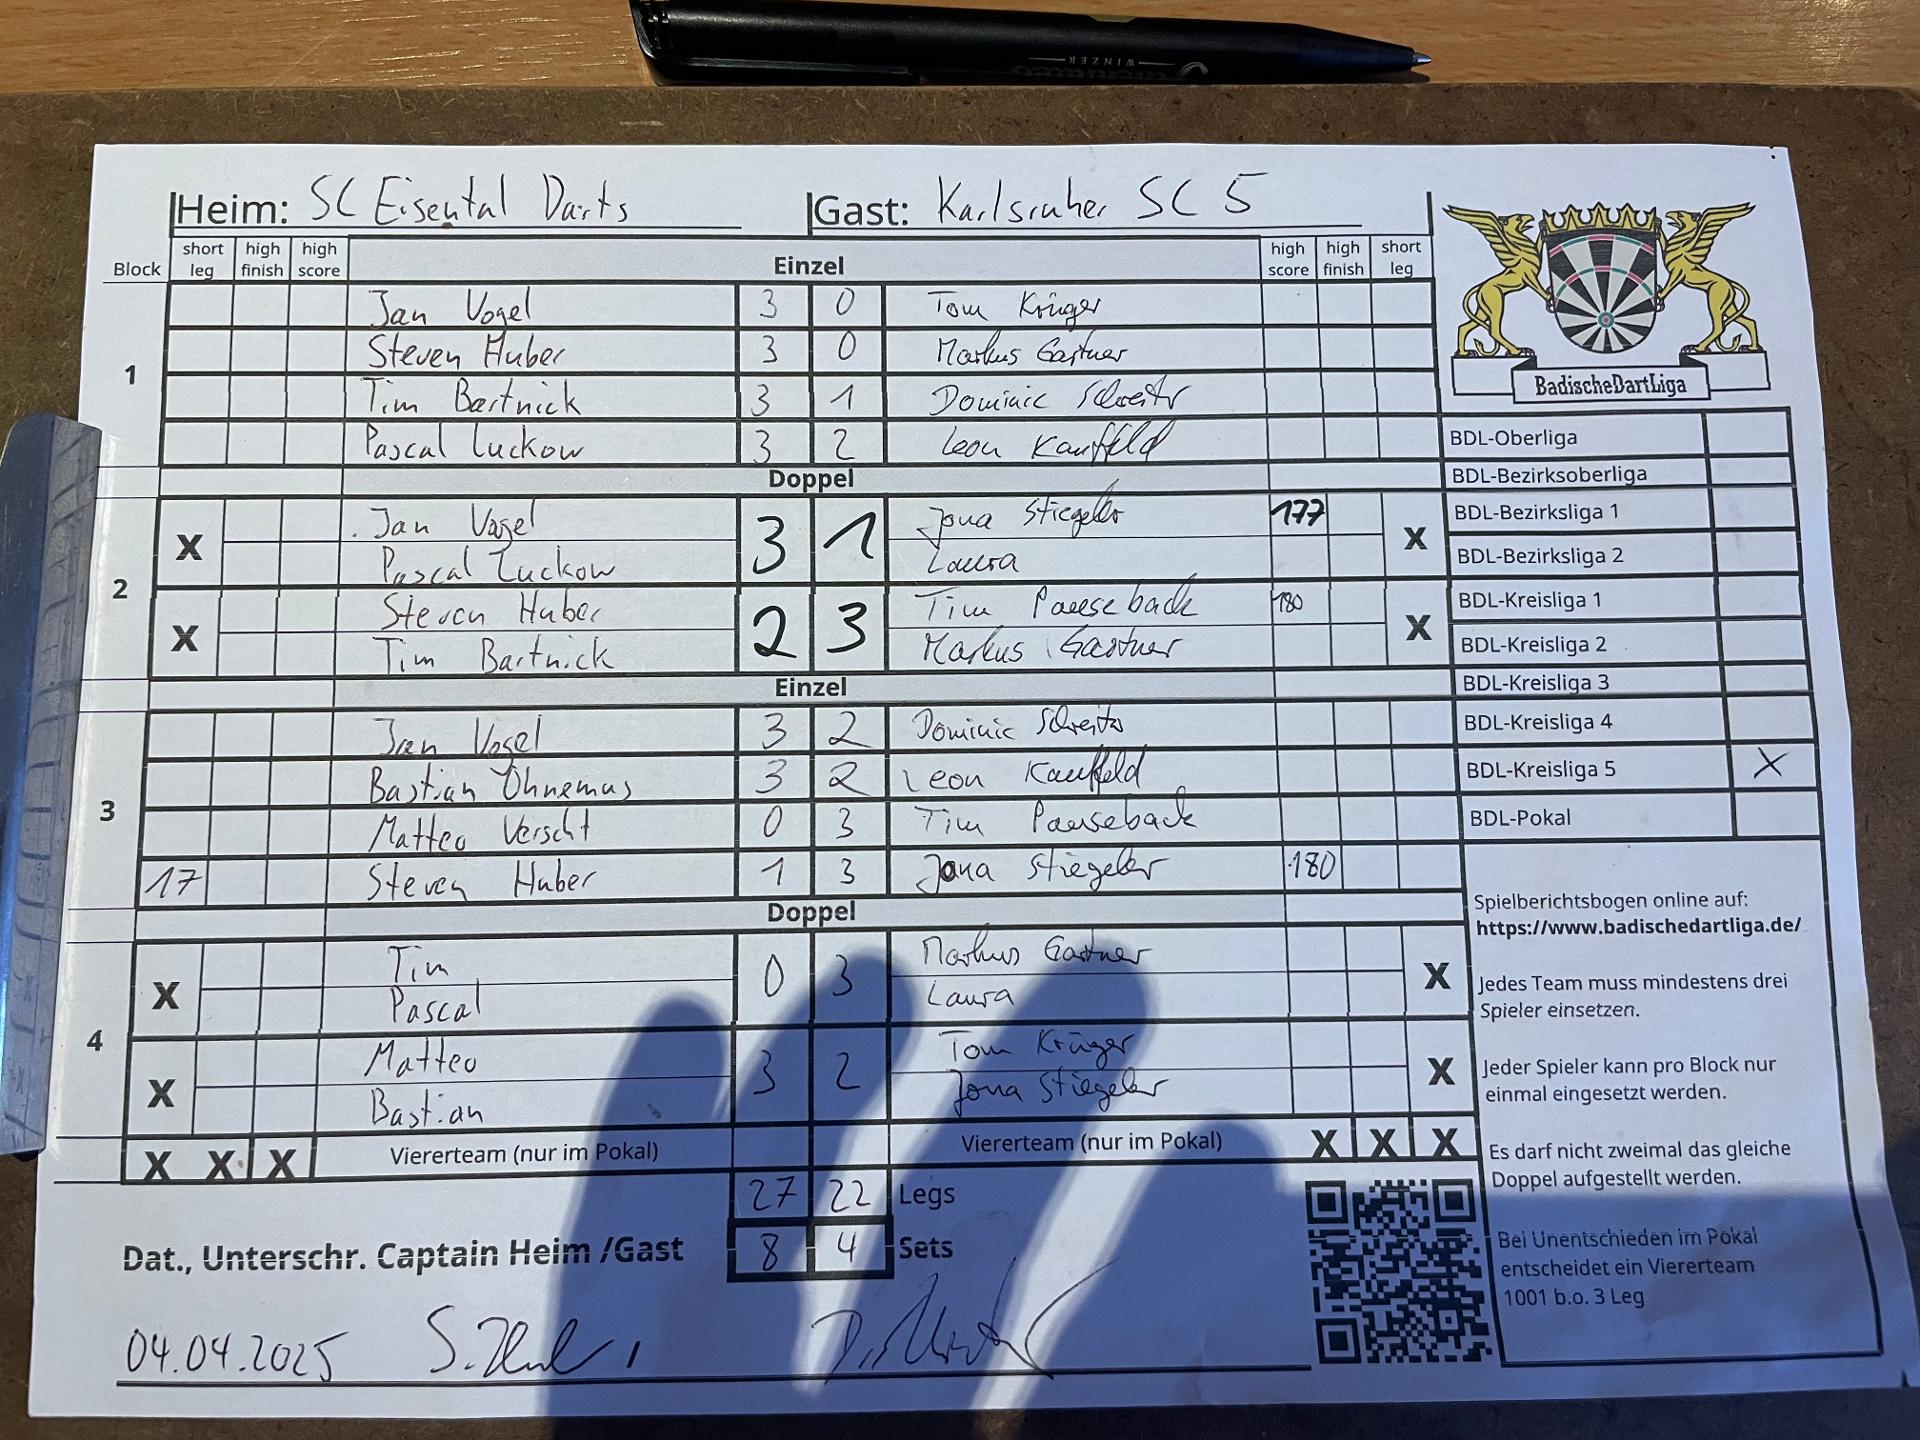 WINZER
Heim: SC Eisental Darts Gast: Karlsruher SC 5
Block short leg high finish high score Einzel high score high finish short leg
1
Jan Vogel 3 0 Tom Krüger
Steven Huber 3 0 Markus Gartner
Tim Bartnick 3 1 Dominic Schreiter
Pascal Luckow 3 2 Leon Kauffeld
Doppel
2
X Jan Vogel 3 1 Jona Stiegeler 177 X
Pascal Luckow Laura
X Steven Huber 2 3 Tim Pauseback 180 X
Tim Bartnick Markus Gartner
Einzel
3
Jan Vogel 3 2 Dominic Schreiter
Bastian Ohnemus 3 2 Leon Kauffeld
Matteo Verscht 0 3 Tim Pauseback
17 Steven Huber 1 3 Jona Stiegeler 180
Doppel
4
X Tim 0 3 Markus Gartner X
Pascal Laura
X Matteo 3 2 Tom Krüger X
Bastian Jona Stiegeler
X X X Viererteam (nur im Pokal) Viererteam (nur im Pokal) X X X
27 22 Legs
Dat., Unterschr. Captain Heim /Gast 8 4 Sets
04.04.2025
BadischeDartLiga
BDL-Oberliga
BDL-Bezirksoberliga
BDL-Bezirksliga 1
BDL-Bezirksliga 2
BDL-Kreisliga 1
BDL-Kreisliga 2
BDL-Kreisliga 3
BDL-Kreisliga 4
BDL-Kreisliga 5 X
BDL-Pokal
Spielberichtsbogen online auf:
https://www.badischedartliga.de/
Jedes Team muss mindestens drei
Spieler einsetzen.
Jeder Spieler kann pro Block nur
einmal eingesetzt werden.
Es darf nicht zweimal das gleiche
Doppel aufgestellt werden.
Bei Unentschieden im Pokal
entscheidet ein Viererteam
1001 b.o. 3 Leg